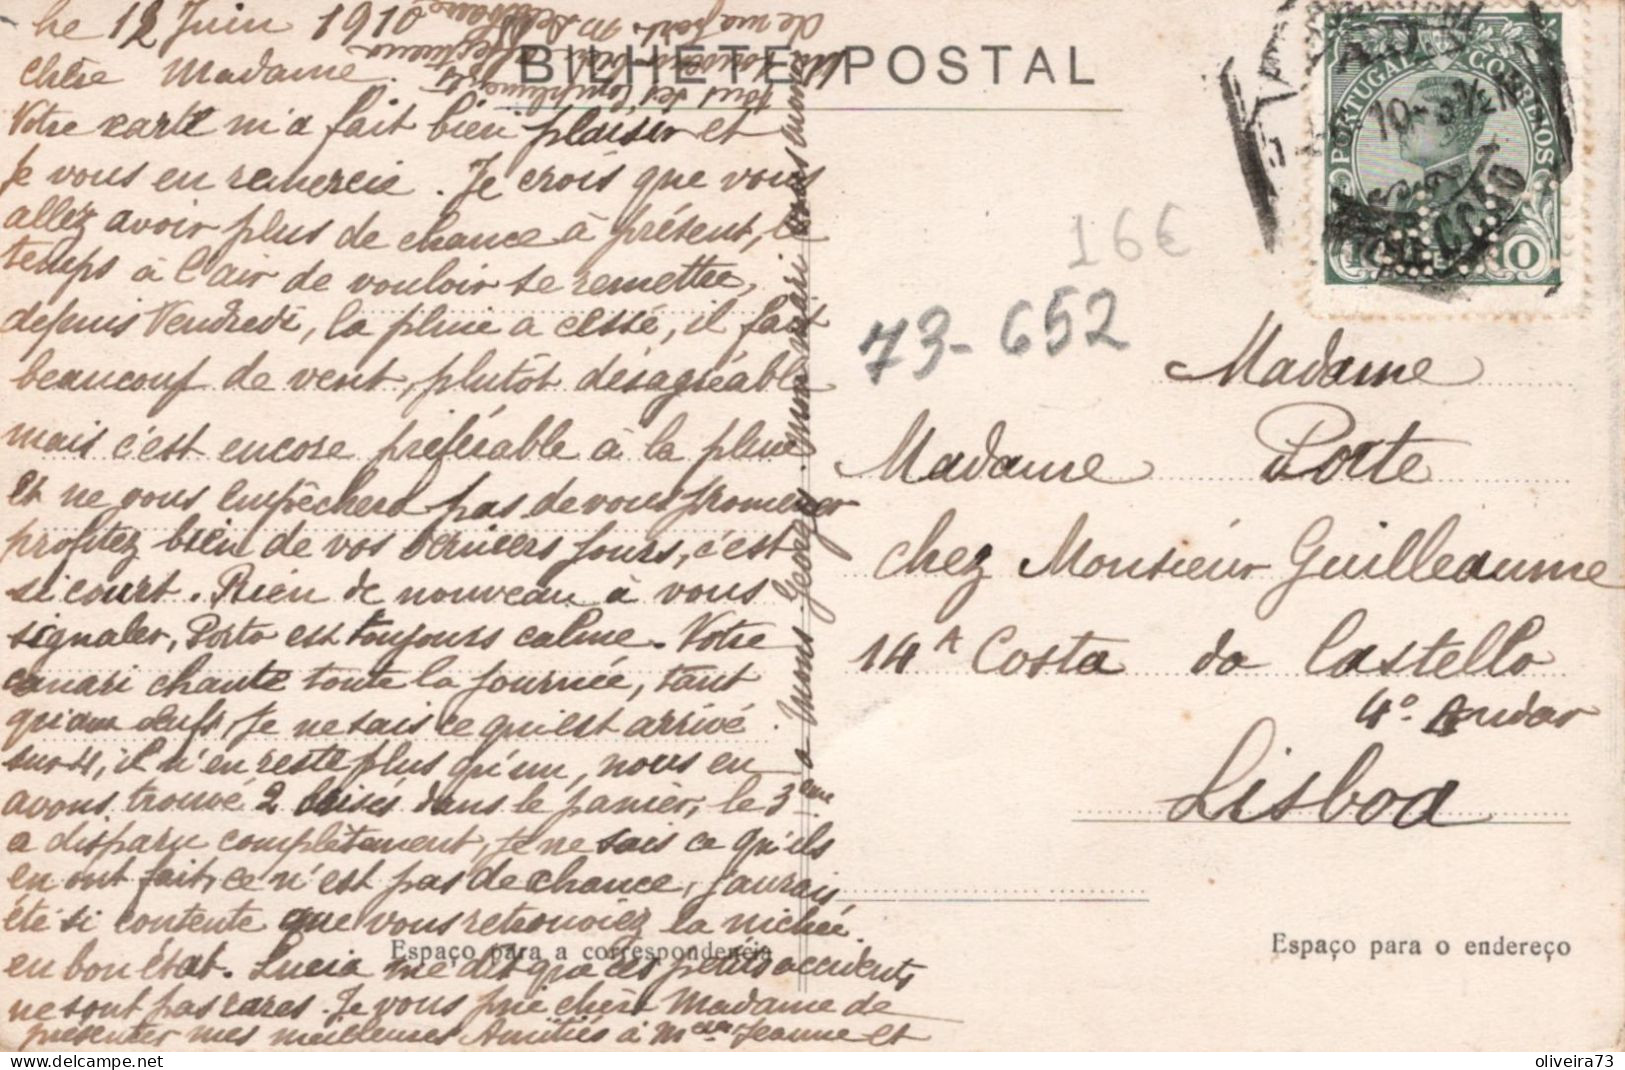 le 12 Juin 1910
chère Madame.
BILHETE POSTAL
Votre carte m'a fait bien plaisir et
je vous en remercie. Je crois que vous
allez avoir plus de chance à présent, le
temps à l'air de vouloir se remettre,
depuis Vendredi, la pluie a cessé, il fait
beaucoup de vent, plutôt désagréable
mais c'est encore préférable à la pluie
et ne vous empêchera pas de vous promener
profitez bien de vos derniers jours, c'est
si court. Rien de nouveau à vous
signaler, Porto est toujours calme. Votre
canari chante toute la journée, tant
qu'aux oeufs, je ne sais ce qu'il est arrivé
sur 4, il n'en reste plus qu'un, nous en
avons trouvé 2 brisés dans le panier, le 3ème
a disparu complètement, je ne sais ce qu'ils
en ont fait, ce n'est pas de chance, j'aurais
été si contente que vous retrouviez la nichée
en bon état. Lucia me dit que ces petits accidents
ne sont pas rares. Je vous prie chère Madame de
présenter mes meilleures Amitiés à Mme Jeanne et
à Mons Georges. mon mari vous
Espaço para a correspondencia
PORTUGAL CORREIOS
10
73-652
16€
Madame
Madame Porte
chez Monsieur Guilleaume
14A Costa do Castello
4º Andar
Lisboa
Espaço para o endereço
oliveira73